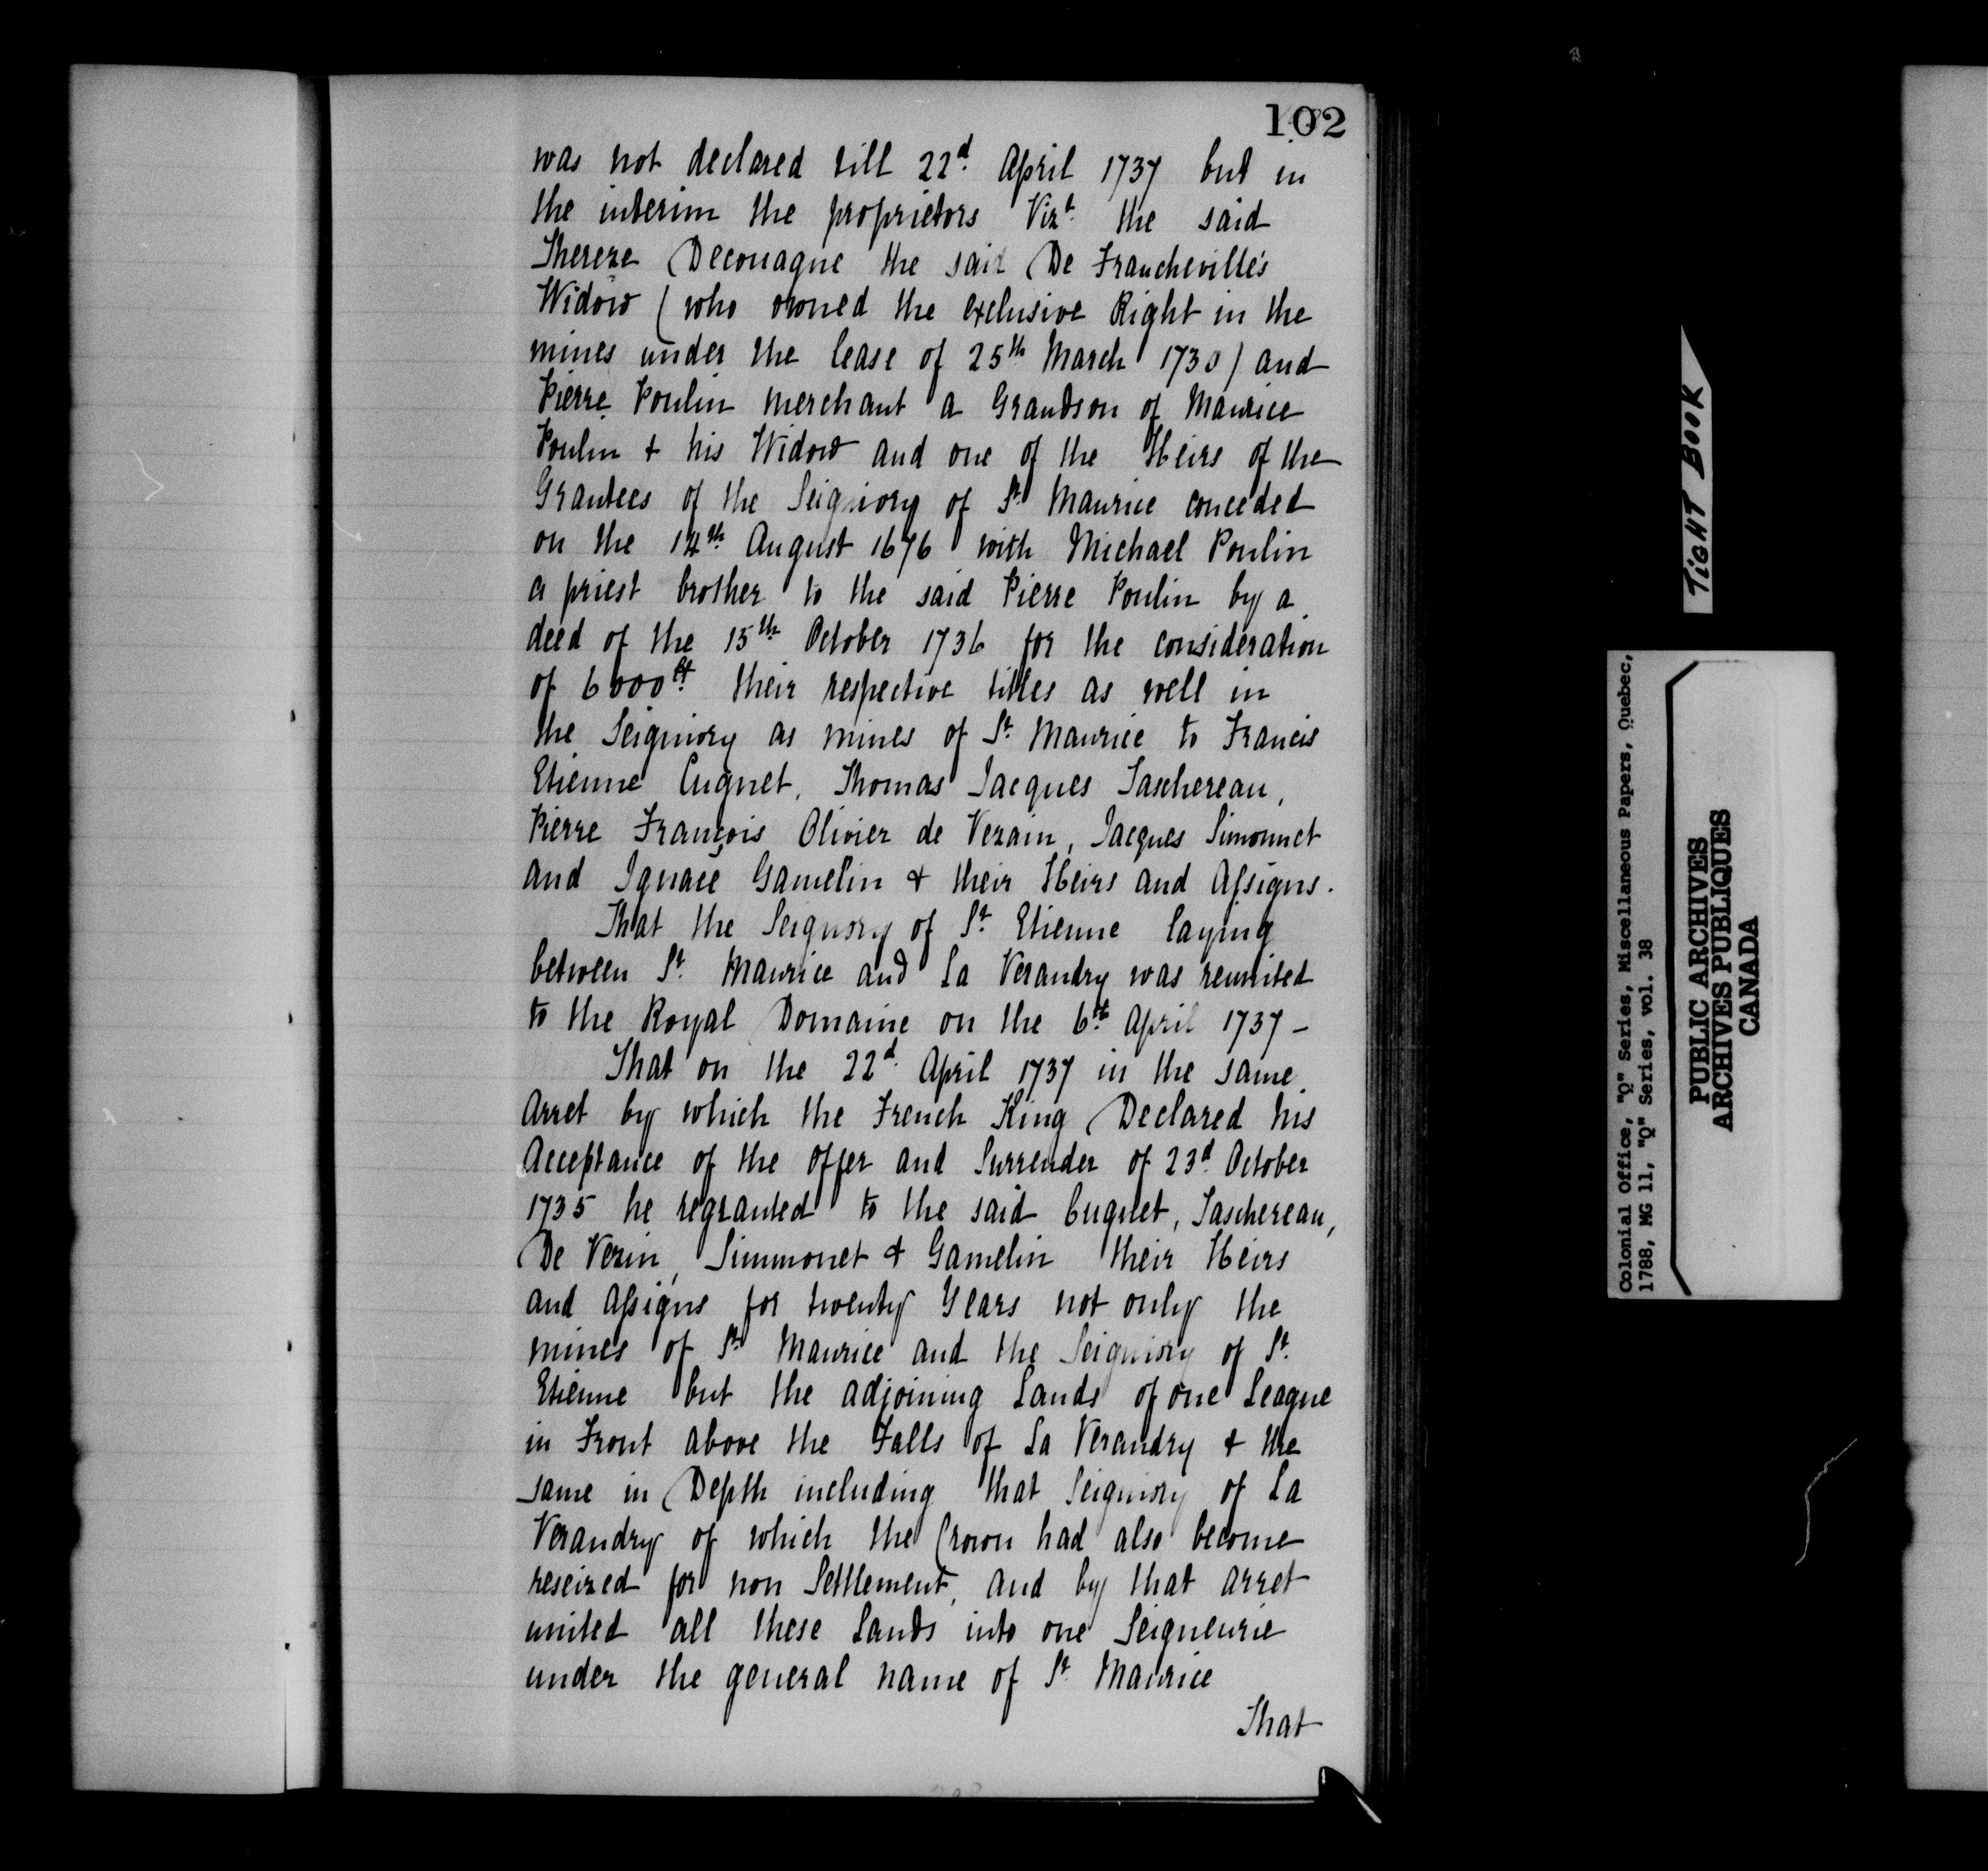 102
was not declared till 22d. April 1737 but in
the interim the proprietors Vizt. the said
Thereze Decouagne the said De Francheville's
Widow (who owned the exclusive Right in the
mines under the lease of 25th March 1730) and
Pierre Poulin merchant a Grandson of Maurice
Poulin & his Widow and one of the Heirs of the
Grantees of the Seigniory of St. Maurice conceded
on the 14th. August 1676 with Michael Poulin
a priest brother to the said Pierre Poulin by a
deed of the 15th October 1736 for the consideration
of 6000 their respective titles as well in
the Seigniory as mines of St. Maurice to Francis
Etienne Cugnet, Thomas Jacques Taschereau,
Pierre François Olivier de Vezain, Jacques Simonnet
and Ignace Gamelin & their Heirs and Assigns.
That the Seignory of St. Etienne laying
between St. Maurice and La Verandry was reunited
to the Royal Domaine on the 6th. April 1737 -
That on the 22d. April 1737 in the same
Arret by which the French King Declared his
Acceptance of the offer and Surrender of 23d. October
1735 he regranted to the said Cugnet, Taschereau,
De Vezin, Simmonet & Gamelin their Heirs
and Assigns for twenty Years not only the
mines of St. Maurice and the Seigniory of St.
Etienne but the adjoining Lands of one League
in Front above the Falls of La Verandry & the
same in Depth including that Seigniory of La
Verandry of which the Crown had also become
reseized for non Settlement, and by that arret
united all these Lands into one Seigneurie
under the general name of St. Maurice
That
TIGHT BOOK
Colonial Office, "Q" Series, Miscellaneous Papers, Quebec,
1788, MG 11, "Q" Series, vol. 38
PUBLIC ARCHIVES
ARCHIVES PUBLIQUES
CANADA